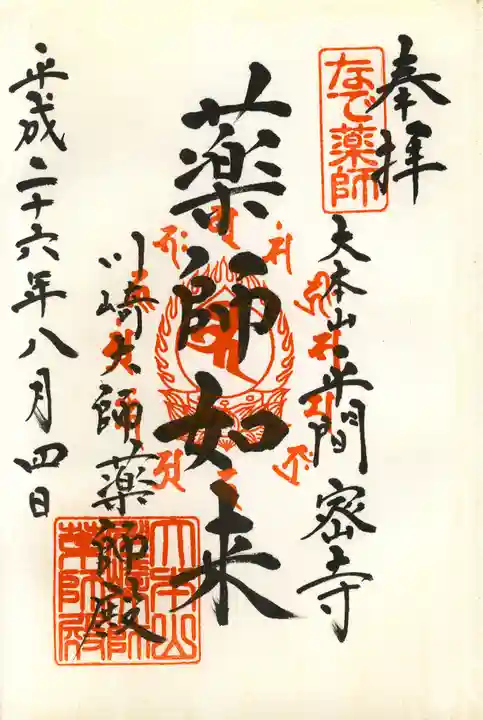 奉拝
なで薬師
大本山平間密寺
薬師如来
川崎大師薬師殿
大本山
薬師殿
平成二十六年八月四日